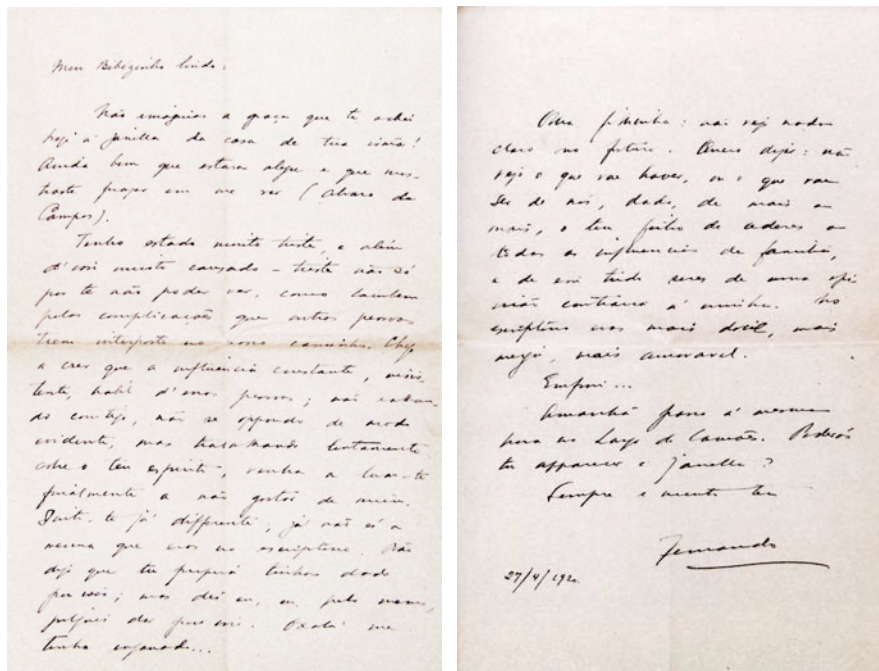 Meu Bebezinho lindo:
Não imaginas a graça que te achei
hoje á janella da casa de tua irmã!
Ainda bem que estavas alegre e que mos-
traste prazer em me ver (Alvaro de
Campos).
Tenho estado muito triste, e além
d'isso muito cansado – triste não só
por te não poder ver, como tambem
pelas complicações que outras pessoas
teem interposto no nosso caminho. Chego
a crer que a influencia constante, insis-
tente, habil d'essas pessoas; não ralhan-
do comtigo, não se oppondo de modo
evidente, mas trabalhando lentamente
sobre o teu espirito, venha a levar-te
finalmente a não gostar de mim.
Sinto-me já differente; já não és a
mesma que eras no escriptorio. Não
digo que tu propria tenhas dado
por isso; mas dei eu, ou, pelo menos,
julguei dar por isso. Oxalá me
tenha enganado...
Olha, filhinha: não vejo nada
claro no futuro. Quero dizer: não
vejo o que vae haver, ou o que vae
ser de nós, dado, de mais a
mais, o teu feitio de cederes a
todas as influencias de familia,
e de em tudo seres de uma opi-
nião contraria á minha. No
escriptorio eras mais docil, mais
meiga, mais amoravel.
Emfim...
Amanhã passo á mesma
hora no Largo de Camões. Poderás
tu apparecer á janella?
Sempre e muito teu
Fernando
27/4/1920.